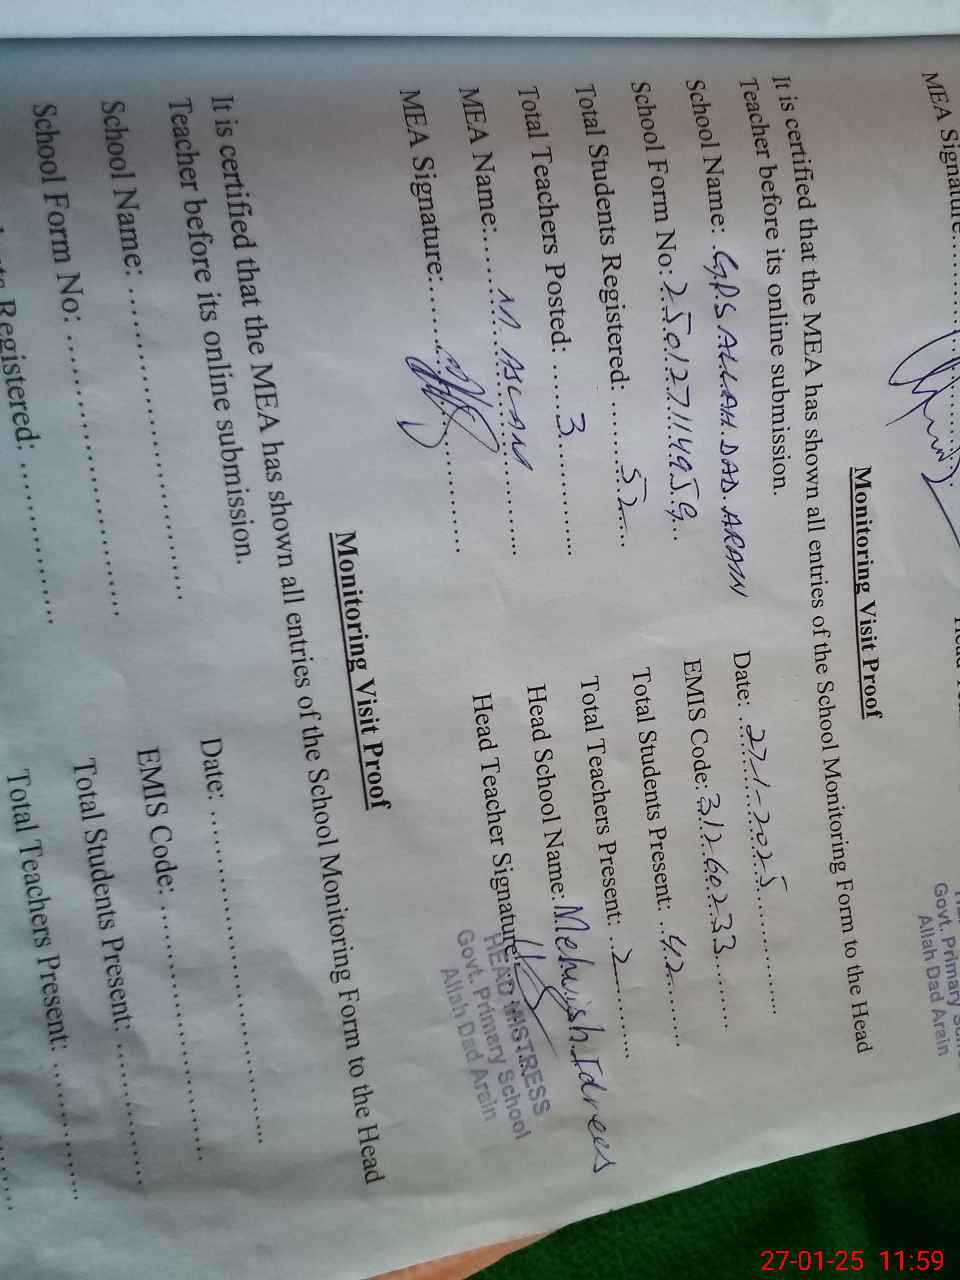 MEA Signature
Govt. Primary
Allah Dad Arain
Monitoring Visit Proof
It is certified that the MEA has shown all entries of the School Monitoring Form to the Head
Teacher before its online submission.
School Name: G.P.S ALLAH DAD ARAIN Date: 27-1-2025
School Form No: 250127114959 EMIS Code: 31260233
Total Students Registered: 52 Total Students Present: 42
Total Teachers Posted: 3 Total Teachers Present: 2
MEA Name: M ASLAM Head School Name: Mehwish Idrees
MEA Signature: Head Teacher Signature:
HEAD MISTRESS
Govt. Primary School
Allah Dad Arain
Monitoring Visit Proof
It is certified that the MEA has shown all entries of the School Monitoring Form to the Head
Teacher before its online submission.
School Name: Date:
School Form No: EMIS Code:
Registered: Total Students Present:
Total Teachers Present:
27-01-25 11:59